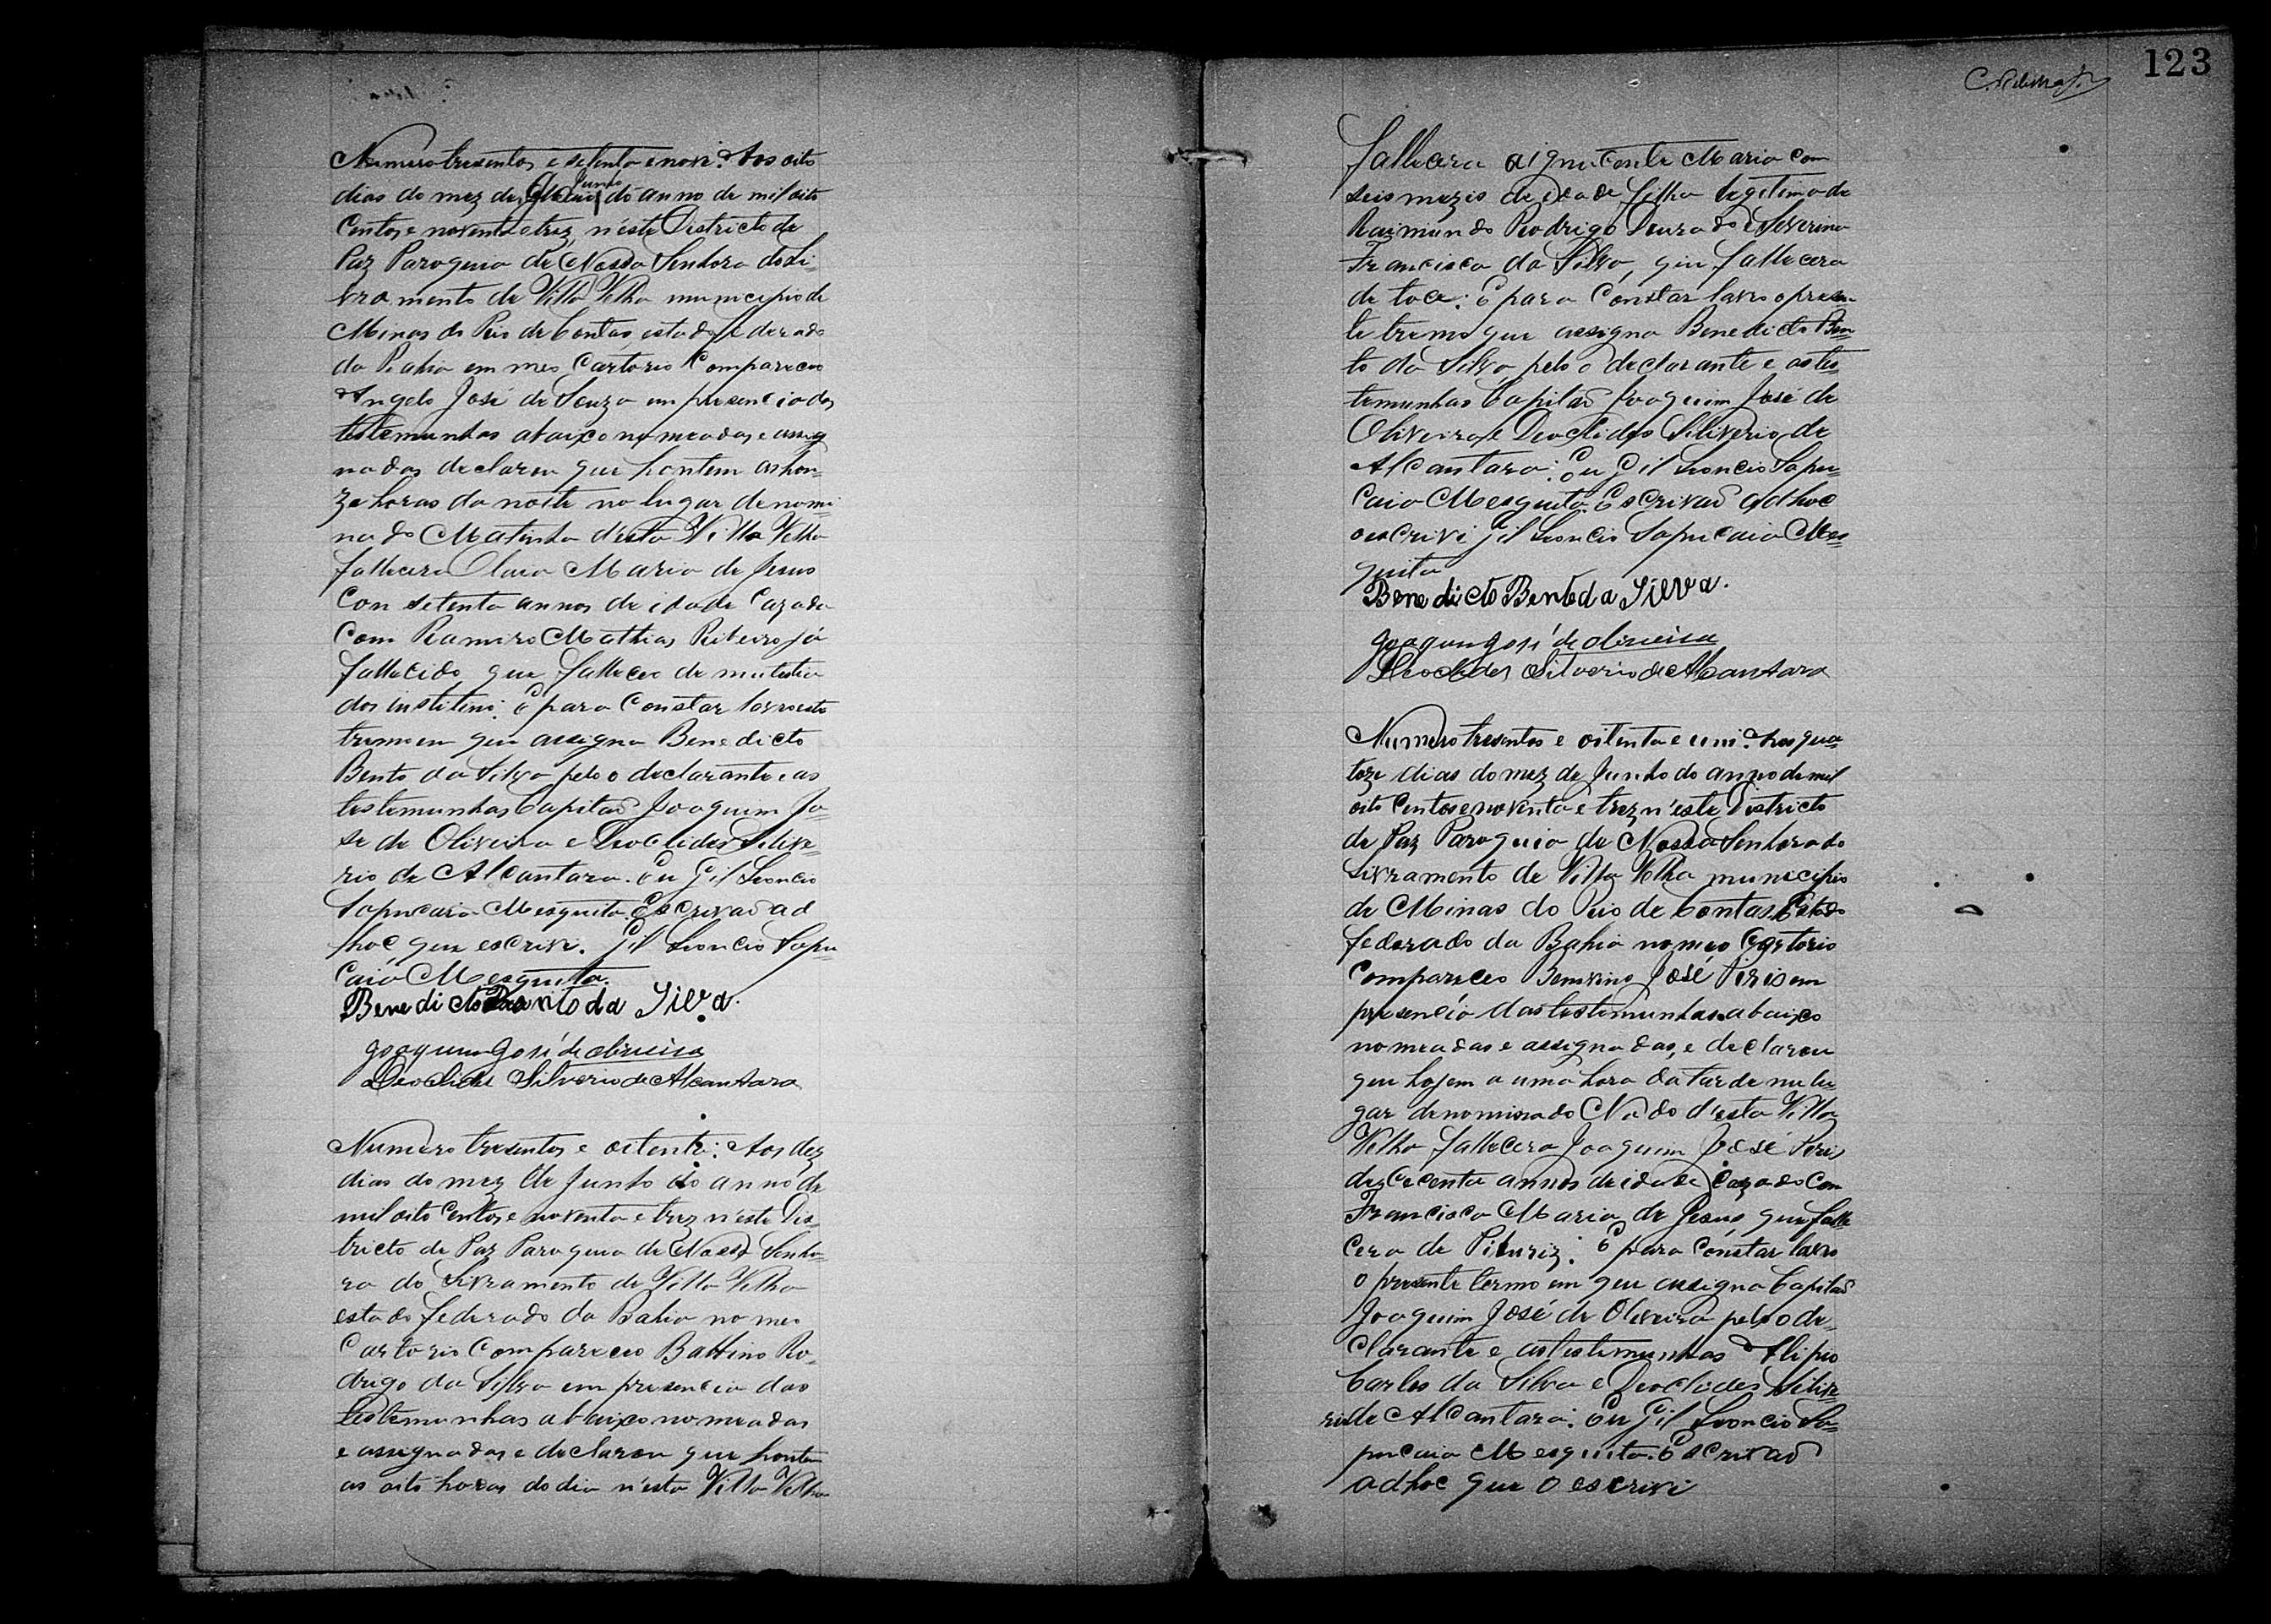 Numero tresentos e setenta e nove. Aos oito
dias do mez de Junho do anno de mil oito
Centos e noventa e trez, n'este Districto de
Paz Paroquia de Nossa Senhora do Li-
vramento de Villa Velha municipio de
Minas do Rio de Contas, estado federado
da Bahia em meo Cartorio Compareceo
Angelo José de Souza em presencia das
testemunhas abaixo nomeadas e assig
nadas declarou que hontem as hon-
ze horas da noite no lugar denomi-
nado Matinha desta Villa Velha
fallecera Clara Maria de Jesus
Con setenta annos de idade Cazada
Com Ramiro Mathias Ribeiro já
fallecido, que falleceo de mulestia
dos institino. E para Constar lavro este
trumo em que assigna Benedicto
Bento da Silva pelo o declarante e as
testemunhas Capitaõ Joaquim Jo-
se de Oliveira e Deoclides Silive=
rio de Alcantara. Eu Gil Leoncio
Sapucaia Mesquita. Escrivaõ ad
hoc que escrivi. Gil Leoncio Sapu
Caia Mesquita.
Benedicto Bento da Silva.
Joaquim José de Oliveira
Deoclides Silverio de Alcantara
Numero tresentos e oitenta: Aos dez
dias do mez de Junho do anno de
mil oito Centos e noventa e trez n'este Dis-
tricto de Paz Paroquia de Nossa Senho=
ra do Livramento de Villa Velha
estado federado da Bahia no meo
Cartorio Compareceo Balbino Ro-
drigo da Silva em presencia das
testemunhas abaixo nomeadas
e assignadas e declarou que hontem
as oito horas do dia n'esta Villa Velha
123
fallecera a ignucente Maria Com
seis mezis de idade filha legitima de
Raimundo Rodrigo Dourado e Severina
Francisca da Silva, que fallecera
de toce: E para Constar lavro o presen
te trumo que assigna Benedicto Ben=
to da Silva pelo o declarante e as tes=
temunhas Capitaõ Joaquim José de
Oliveira e Deoclides Siliverio de
Alcantara: Eu Gil Leoncio Sapu=
Caia Mesquita. Escrivaõ adhoc
o escrivi Gil Leoncio Sapucaia Mes=
quita
Benedicto Bento da Silva.
Joaquim José de Oliveira
Deoclides Silverio de Alcantara
Numero tresentos e oitenta e um. Aos qua=
toze dias do mez de Junho do anno de mil
oito Centos e noventa e trez n'este Districto
de Paz Paroquia de Nossa Senhora do
Livramento de Villa Velha municipio
de Minas do Rio de Contas Estado
federado da Bahia no meo Cartorio
Compareceo José Piris em
presencia das testemunhas abaixo
nomeadas e assignadas, e declarou
que hojem a uma hora da tarde nu lu=
gar denominado Nado d'esta Villa
Velha fallecera Joaquim José Peris
de Cecenta annos de idade Cazado Com
Francisca Maria de Jesus, que falle
Cera de Piluriz: E para Constar lavro
o presente termo em que assigna Capitaõ
Joaquim José de Oliveira pelo o de-
Clarante e as testemunhas Alipio
Carlos da Silva e Deoclides Silive=
rio de Alcantara: Eu Gil Leoncio Sa=
pucaia Mesquita. Escrivaõ
adhoc que o escrivi